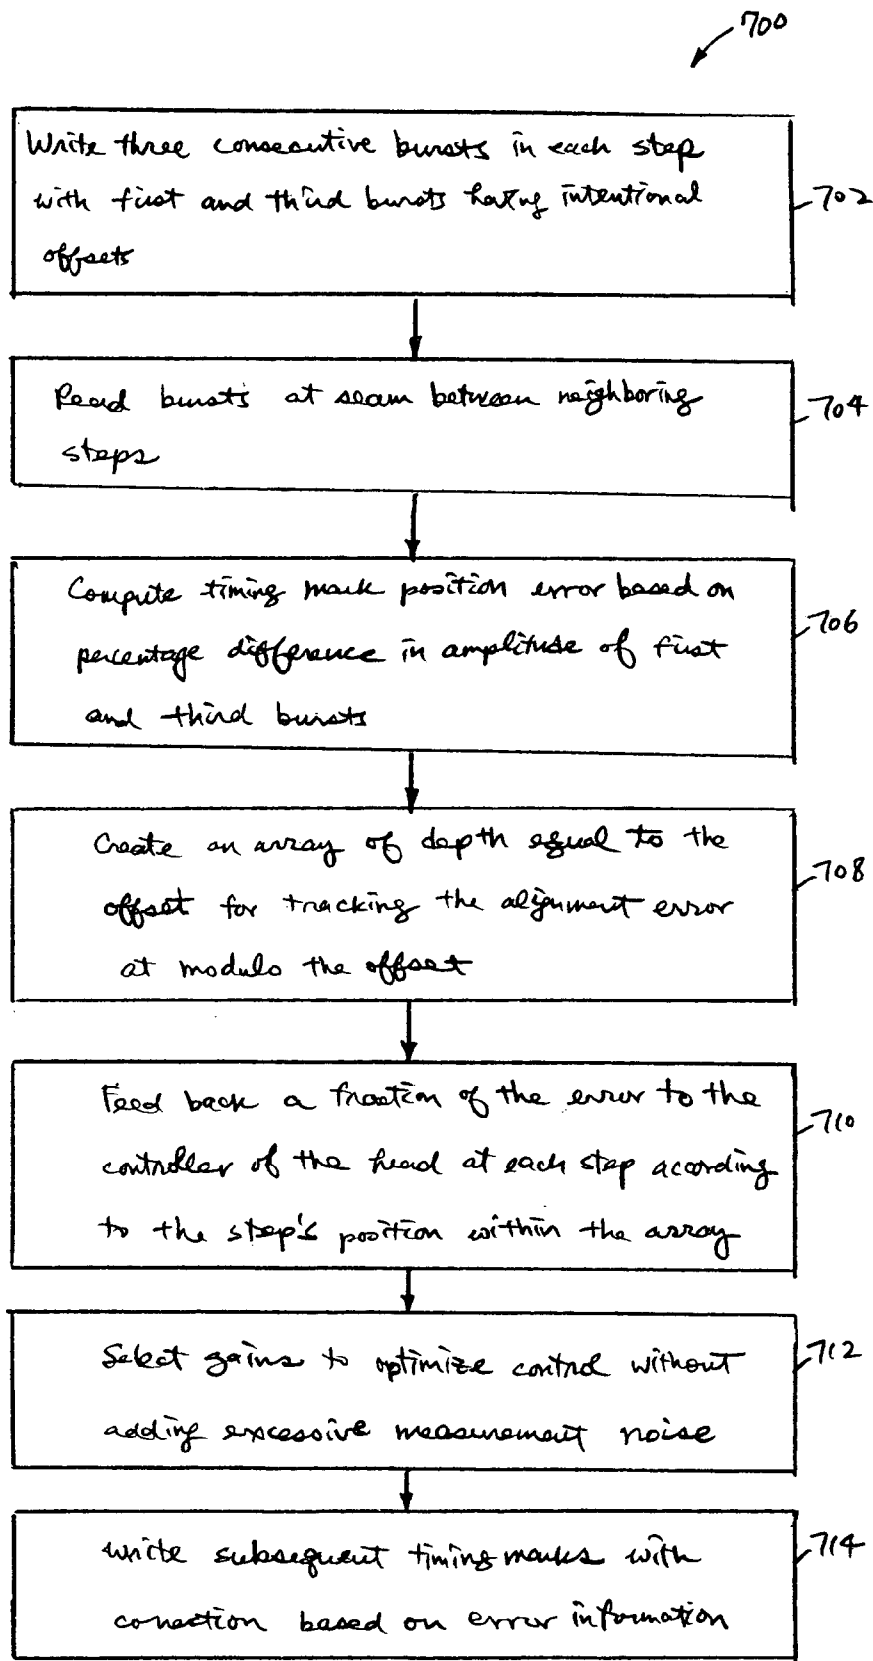 700
Write three consecutive bursts in each step
with first and third bursts having intentional
offsets
702
Read bursts at seam between neighboring
steps
704
Compute timing mark position error based on
percentage difference in amplitude of first
and third bursts
706
Create an array of depth equal to the
offset for tracking the alignment error
at modulo the offset
708
Feed back a fraction of the error to the
controller of the head at each step according
to the step's position within the array
710
Select gains to optimize control without
adding excessive measurement noise
712
Write subsequent timing marks with
correction based on error information
714